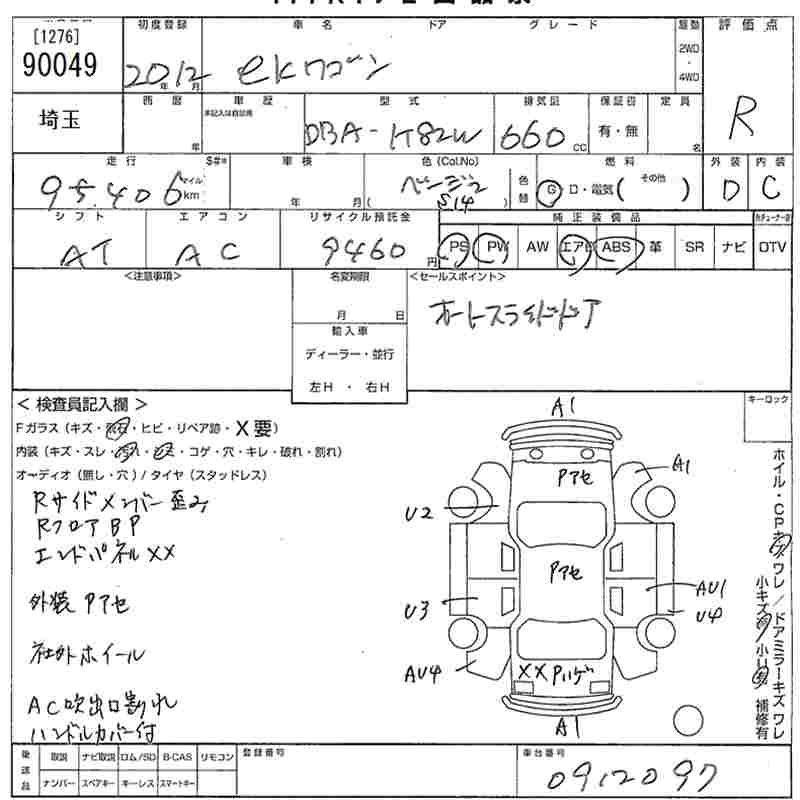 [1276]
90049
初度登録 20年12月
車名 ekワゴン
ドア グレード
駆動 2WD・4WD
評価点 R
埼玉
西暦 年
車歴 本記入は自己用
型式 DBA-H82W
排気量 660 CC
保証書 有・無
定員 名
走行 95,406 マイル km
S#*
車検 年 月
色(Col.No) ベージュ ( S14 )
色替
燃料 G ロ・電気( その他 )
外装 D
内装 C
シフト AT
エアコン AC
リサイクル預託金 9460 円
純正装備品
PS PW AW エアB ABS 革 SR ナビ DTV
<注意事項>
名変期限 月 日
輸入車
ディーラー・並行
左H ・ 右H
<セールスポイント>
オートスライドドア
< 検査員記入欄 >
キーロック
Fガラス(キズ・・ヒビ・リペア跡・X要)
内装(キズ・スレ・・・コゲ・穴・キレ・破れ・割れ)
オーディオ(無し・穴)/タイヤ(スタッドレス)
Rサイドメンバー歪み
RフロアBP
エンドパネルXX
外装 Pアセ
社外ホイール
AC吹出口割れ
ハンドルカバー付
A1
Pアセ
A1
U2
Pアセ
AU1
U4
U3
AU4
XX Pハゲ
A1
ホイル・CPキズ ワレ/ドアミラーキズ ワレ
小キズ 小凹 補修有
後送品
取説 ナビ取説 ロム/SD B-CAS リモコン
ナンバー スペアキー キーレス スマートキー
登録番号
車台番号
0912097